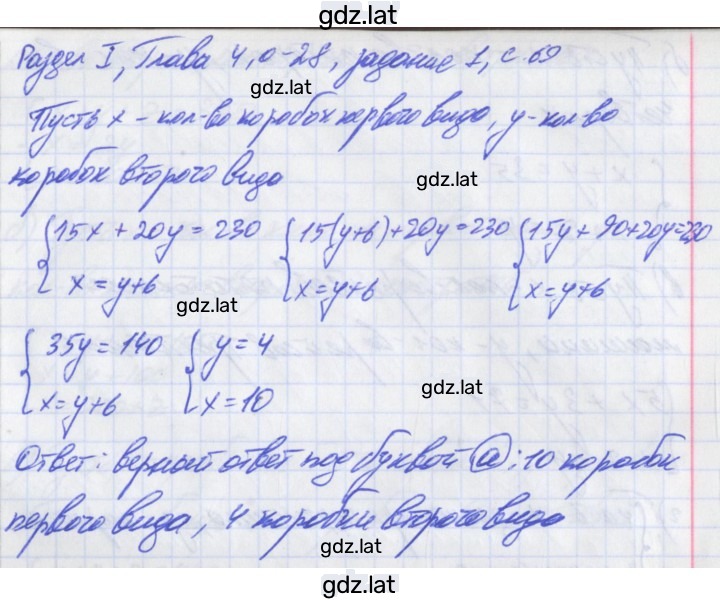 gdz.lat
Раздел I, Глава 4, О-28, задание 1, с. 69
gdz.lat
Пусть x - кол-во коробок первого вида, y - кол-во
коробок второго вида
gdz.lat
{15x + 20y = 230 {15(y+6)+20y=230 {15y+90+20y=230
x = y+6 x=y+6 x=y+6
gdz.lat
{35y=140 {y=4
x=y+6 x=10
gdz.lat
Ответ: верный ответ под буквой а: 10 коробок
первого вида, 4 коробки второго вида
gdz.lat
gdz.lat